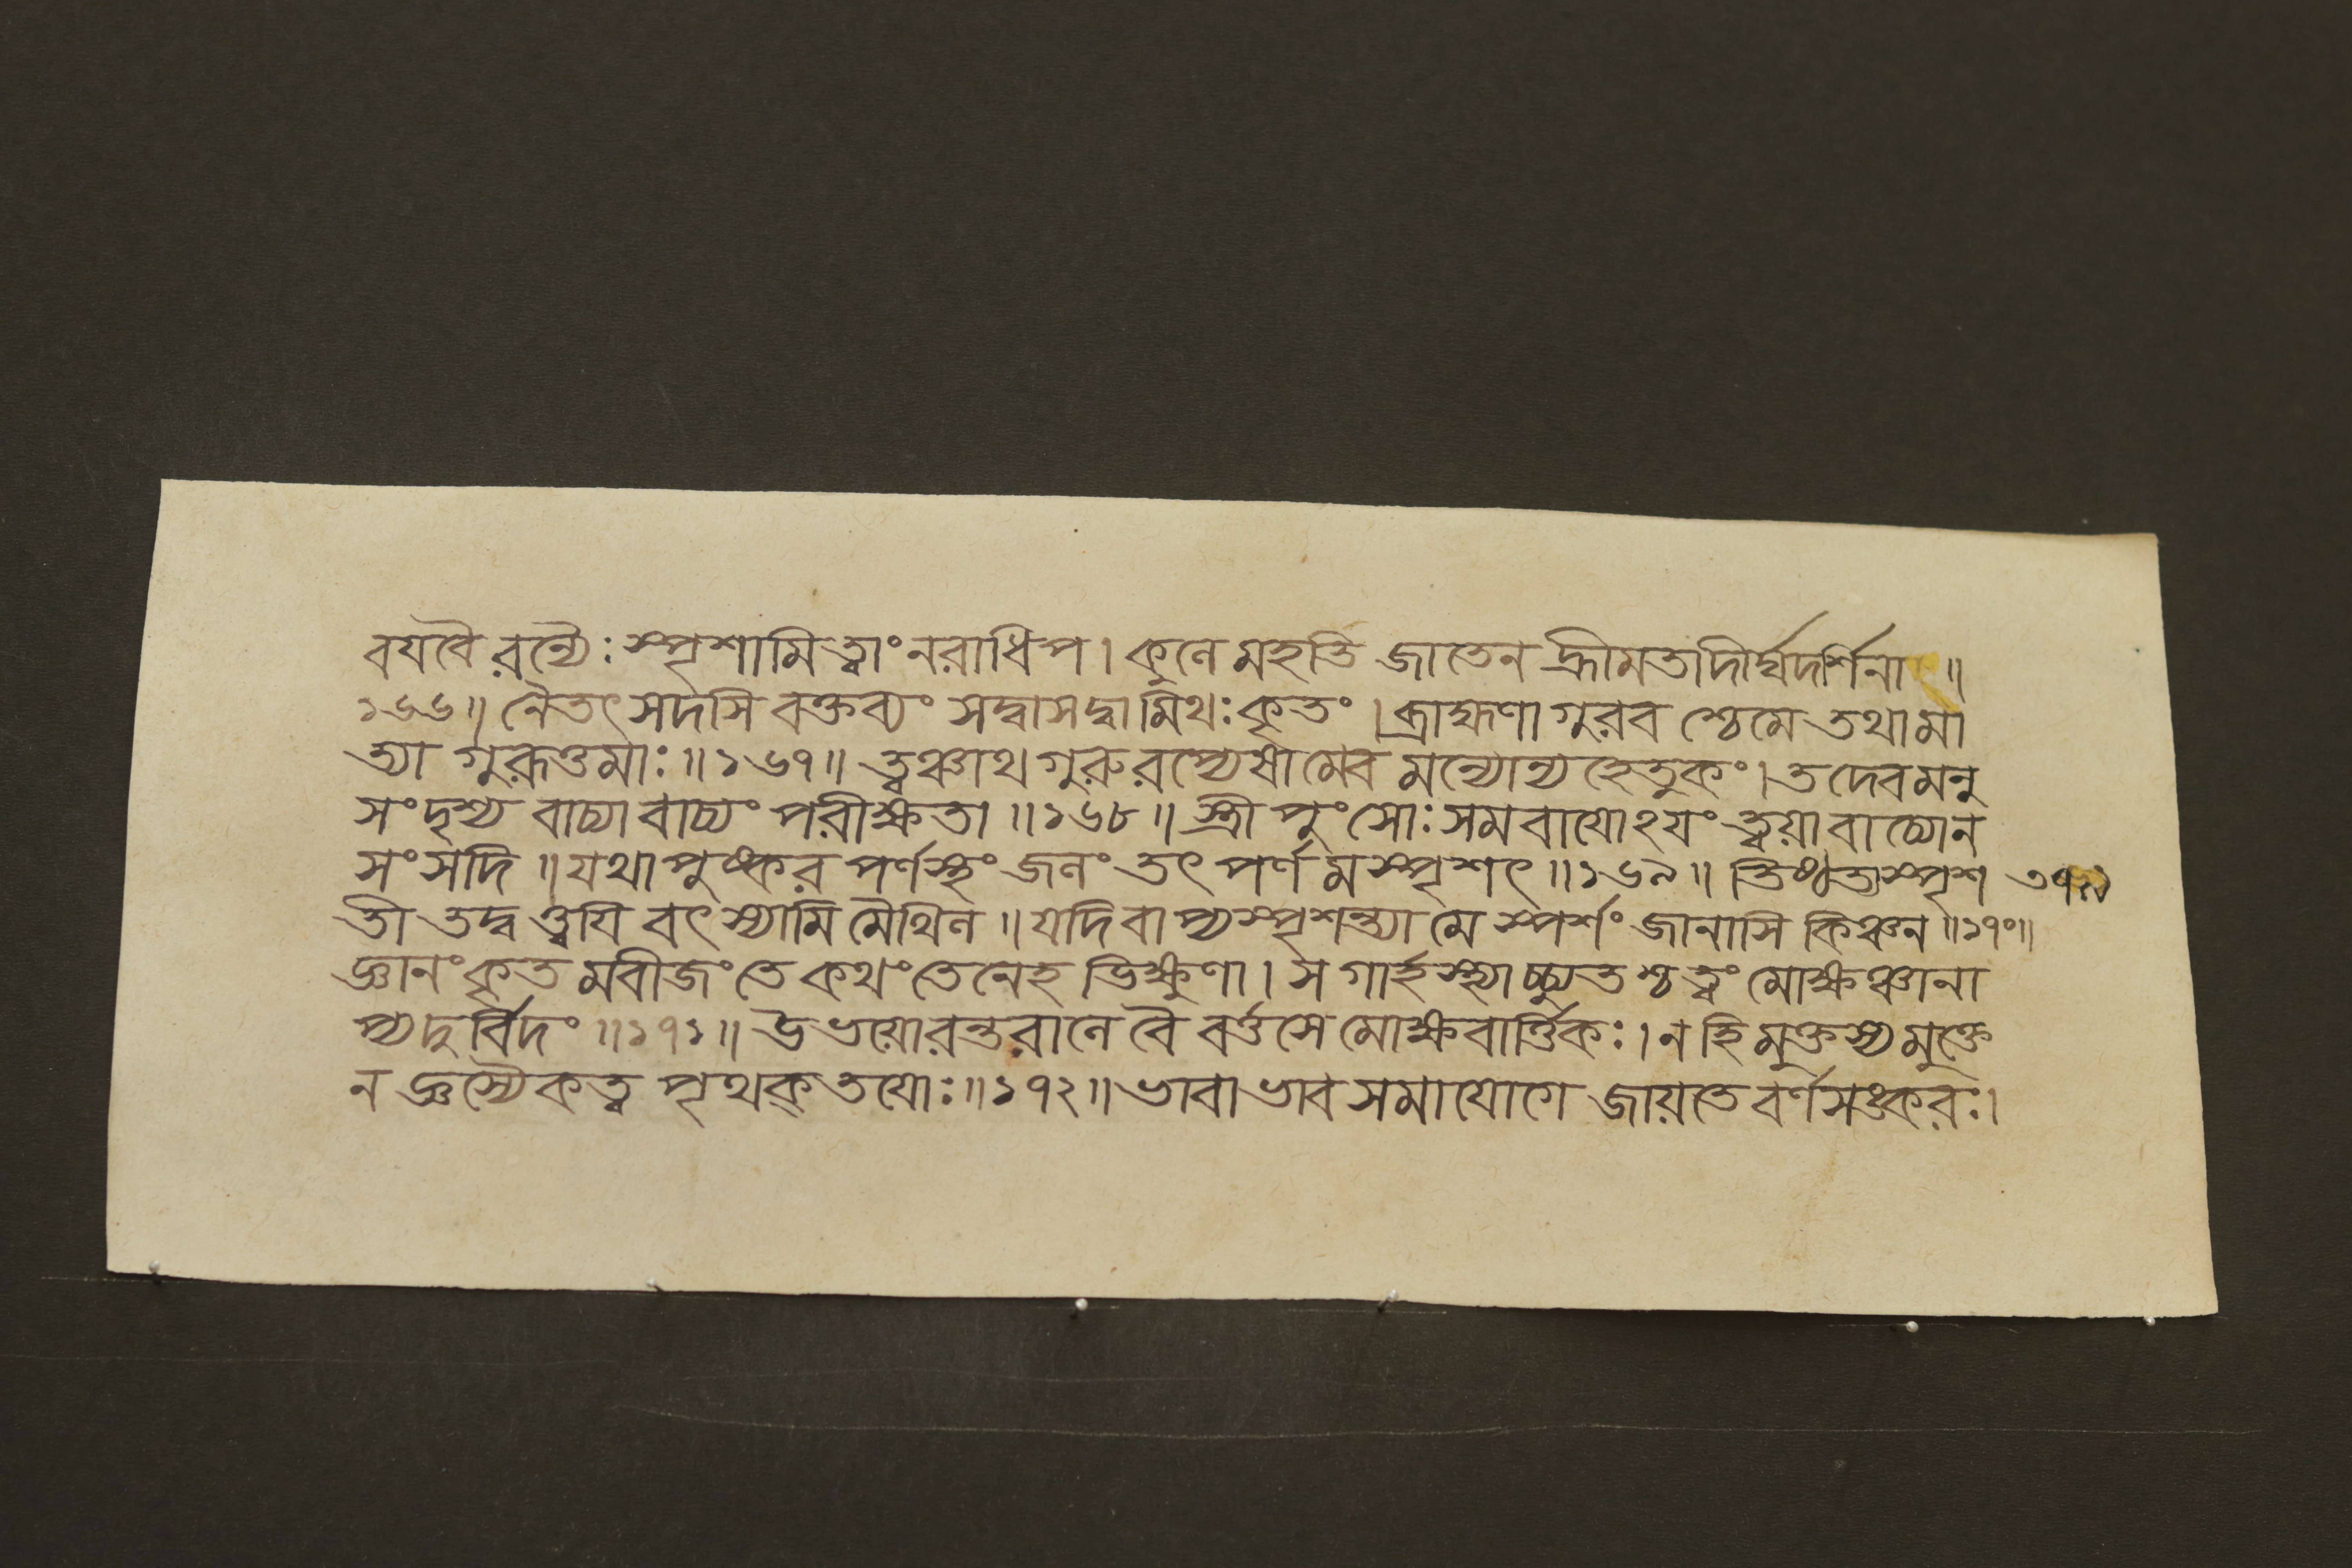 বযবৈরন্যৈঃ স্পৃশামি ত্বাং নরাধিপ। কুলে মহতি জাতেন হ্রীমতা দীর্ঘদর্শিনা ॥
১৬৬॥ নৈতৎ সদসি বক্তব্যং সদ্বাসদ্বা মিথঃ কৃতং। ব্রাহ্মণা গুরবশ্চেমে তথামা
ত্যা গুরূত্তমাঃ ॥১৬৭॥ ত্বঞ্চাথ গুরুরপ্যেষামেবমন্যোন্যহেতুকং। তদেবমনু
সংদৃশ্য বাচ্যাবাচ্যং পরীক্ষতা ॥১৬৮॥ স্ত্রীপুংসোঃ সমবাযোঽযং ত্বয়া বাচ্যোন
সংসদি ॥ যথা পুষ্করপর্ণস্থং জলং তৎপর্ণমস্পৃশৎ ॥১৬৯॥ তিষ্ঠত্যস্পৃশ
তী তদ্বত্ত্বযি বৎস্যামি মৈথিল ॥ যদি বাপ্যস্পৃশন্ত্যা মে স্পর্শং জানাসি কিঞ্চন ॥১৭০॥
জ্ঞানং কৃতমবীজং তে কথং তেনেহ ভিক্ষুণা। স গার্হস্থ্যাচ্চ্যুতশ্চ ত্বং মোক্ষঞ্চানা
প্য দুর্বিদং ॥১৭১॥ উভয়োরন্তরালে বৈ বর্ত্তসে মোক্ষবার্ত্তিকঃ। ন হি মুক্তস্য মুক্তে
ন জ্ঞস্যৈকত্বপৃথক্তযোঃ ॥১৭২॥ ভাবাভাবসমাযোগে জায়তে বর্ণসঙ্করঃ।